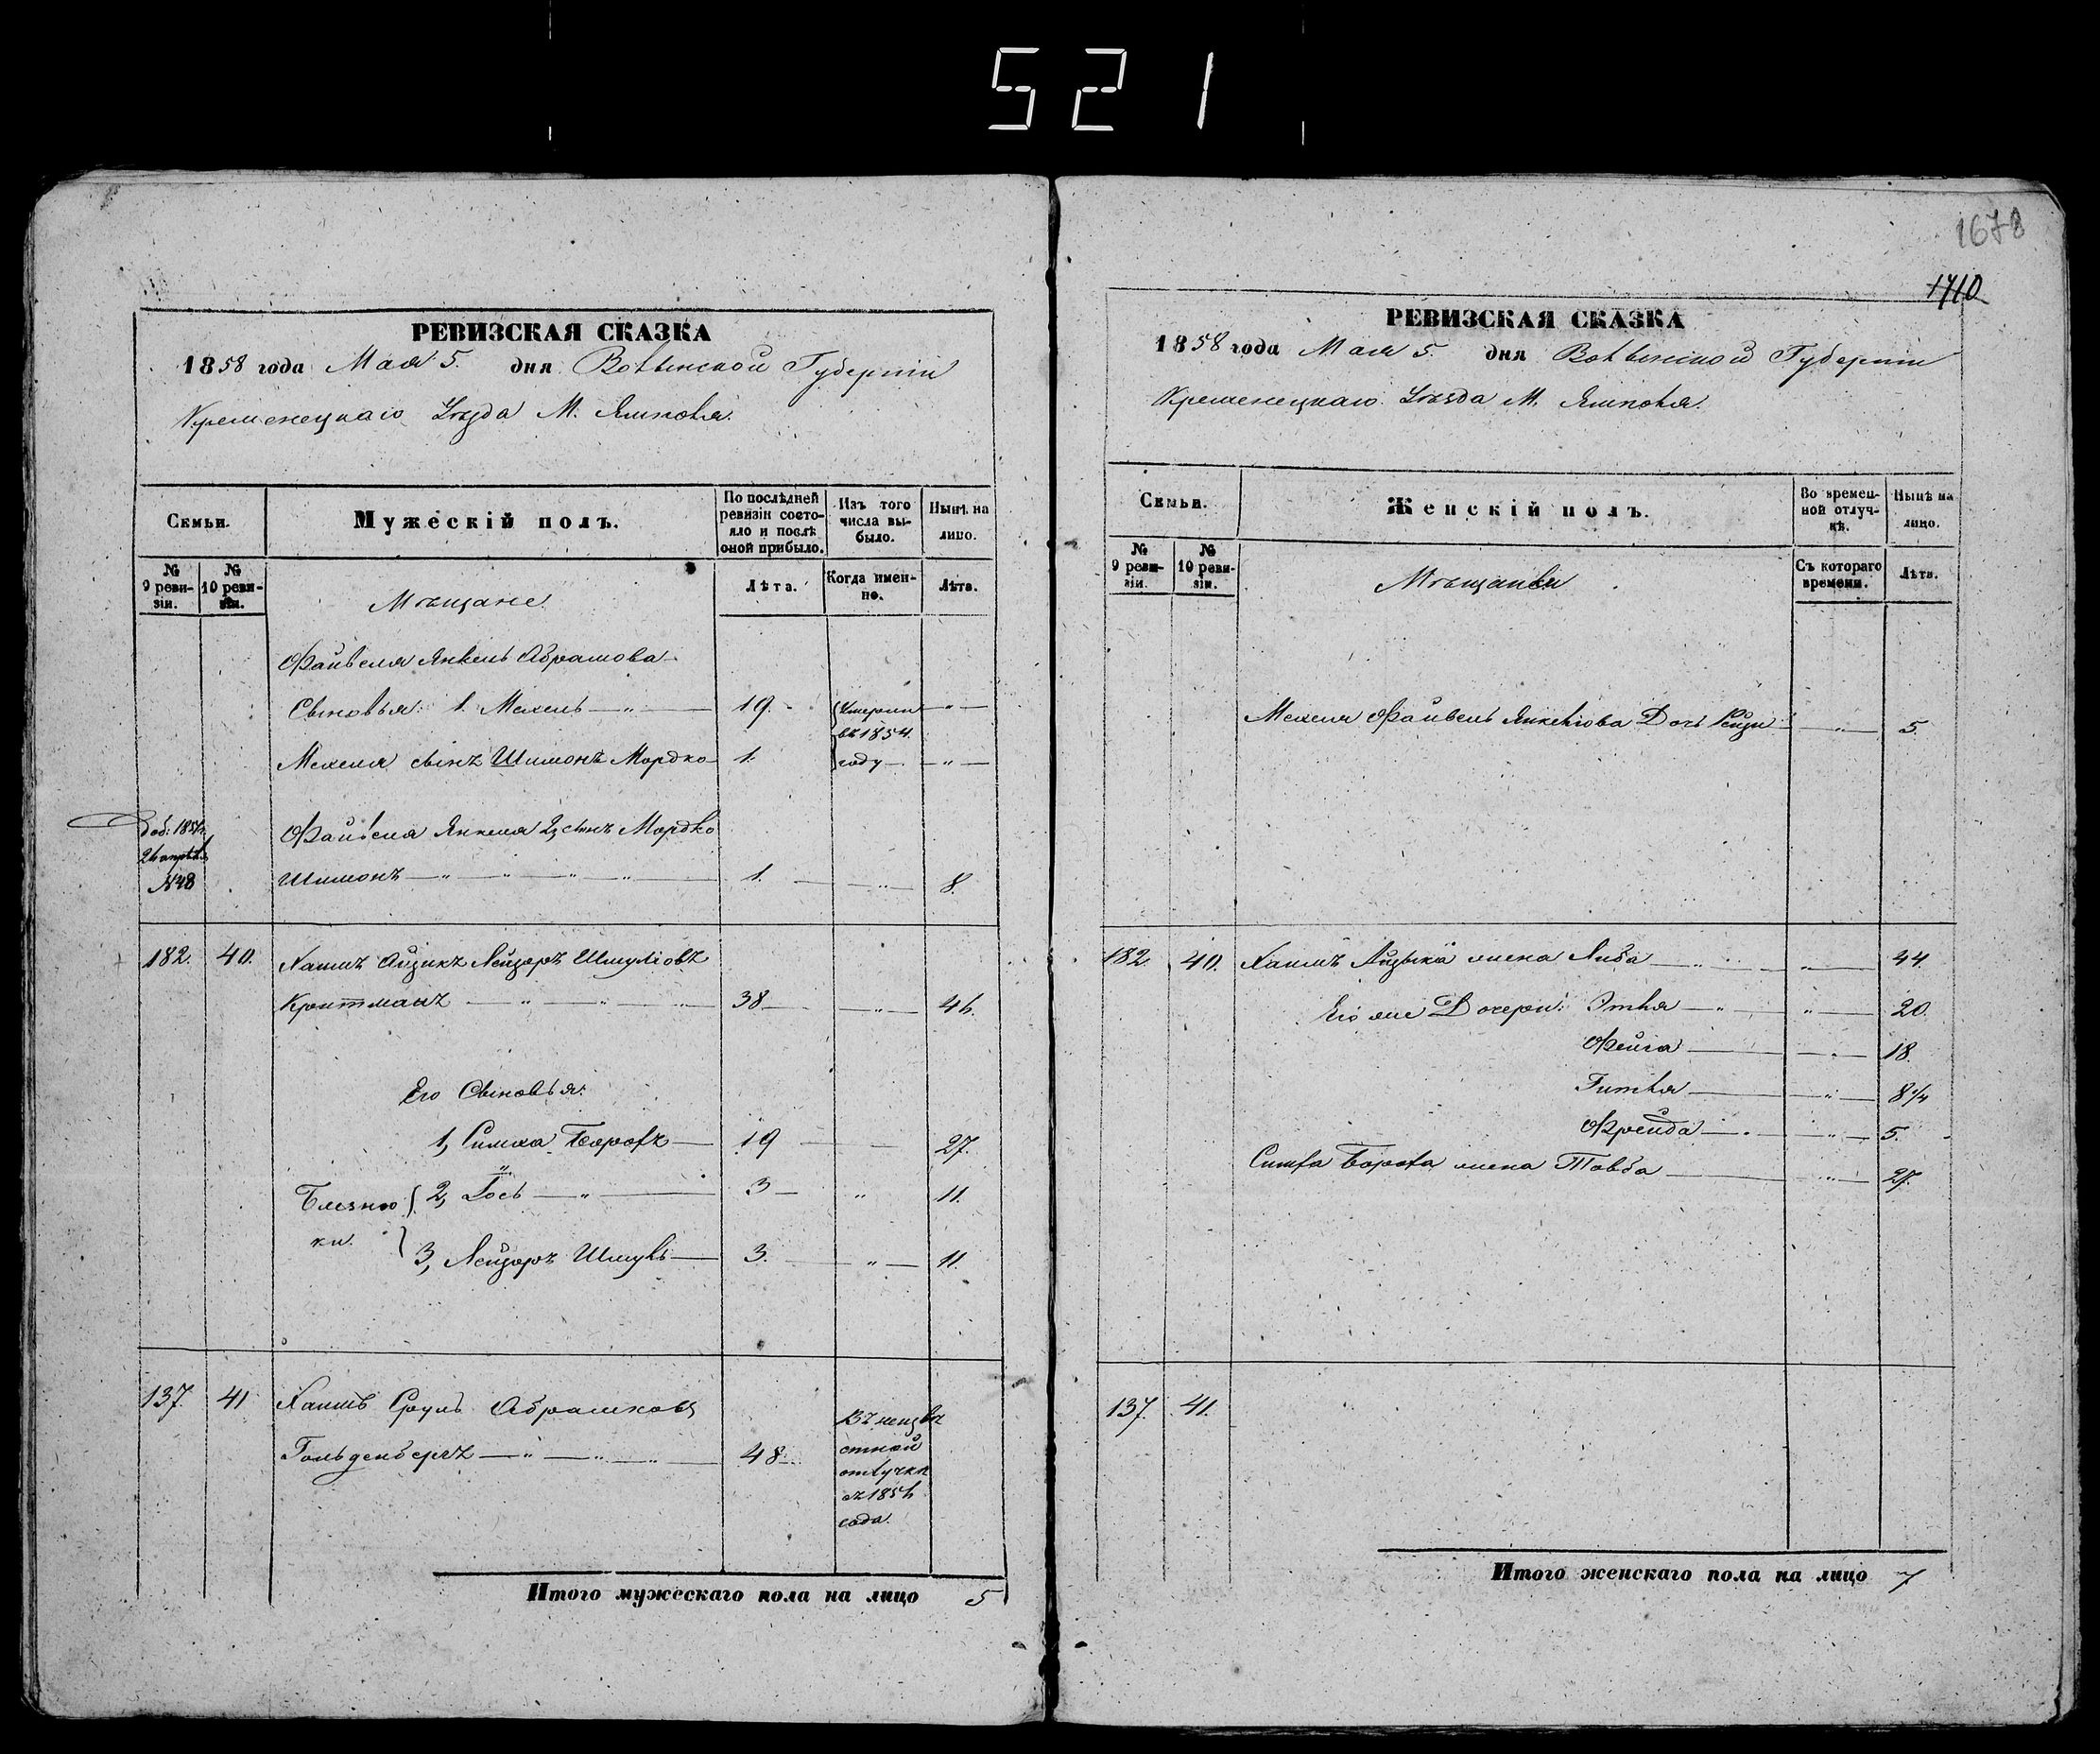 521
1678
1710
РЕВИЗСКАЯ СКАЗКА
1858 года Мая 5. дня Волынской Губерніи
Кременецкаго Уѣзда М. Ямполя.
Семьи.
Мужескій полъ.
По послѣдней ревизіи состояло и послѣ оной прибыло.
Изъ того числа выбыло.
Нынѣ на лицо.
№ 9 ревизіи.
№ 10 ревизіи.
Лѣта.
Когда именно.
Лѣта.
Мѣщане.
Файвеля Янкель Абрамова
Сыновья: 1. Мехель — " — 19. Умерли — " —
въ 1854.
Мехеля сынъ Шимонъ Мордко 1. году — " —
Доб: 1851 г.
Файвеля Янкеля 2, сынъ Мордко
№ 48 Шимонъ — " — " — " — " — 1. — " — 8.
182. 40. Хаимъ Айзикъ Лейзоръ Шмуліовъ
Кройтманъ — " — " — " — 38 — " — 46.
Его Сыновья:
1, Симха Борохъ — 19 — 27.
Близнюки. { 2, Іось — " — 3 — " 11.
3, Лейзоръ Шмуль — 3. — " — 11.
137. 41 Хаимъ Сруль Абрамковъ
Гольденбергъ — " — " — " — 48 Въ неизвѣстной
отлучкѣ
съ 1856
года.
Итого мужескаго пола на лицо 5
РЕВИЗСКАЯ СКАЗКА
1858 года Мая 5. дня Волынской Губерніи
Кременецкаго Уѣзда М. Ямполя.
Семьи.
Женскій полъ.
Во временной отлучкѣ.
Нынѣ на лицо.
№ 9 ревизіи.
№ 10 ревизіи.
Съ котораго времени.
Лѣта.
Мѣщанки
Мехеля Файвель Янкеліова Дочь Рейзи — " — 5.
182. 40. Хаимъ Айзыка жена Либа — " — " — 44.
Его же Дочери: Этля — " — " — 20.
Фейга — " — 18.
Гитля — " — 8 1/4
Фрейда — " — " — 5.
Симха Бороха жена Товба — " — 27.
137. 41.
Итого женскаго пола на лицо 7